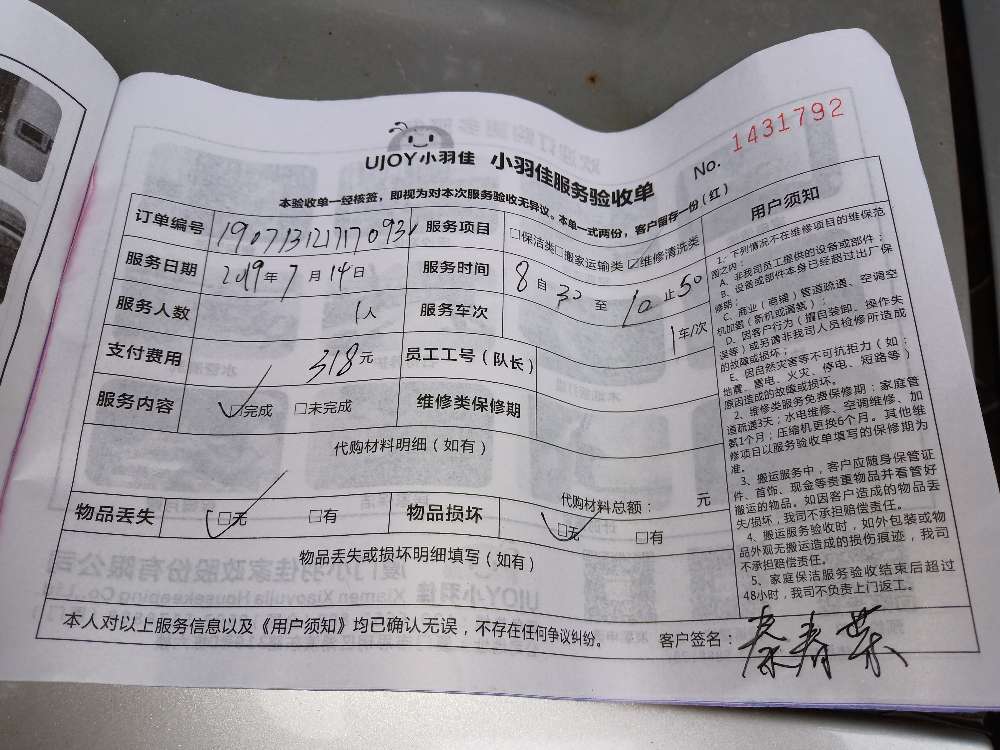 No. 1431792
UJOY小羽佳 小羽佳服务验收单
本验收单一经核签，即视为对本次服务验收无异议。本单一式两份，客户留存一份（红）
订单编号 190713121717093 服务项目 □保洁类□搬家运输类☑维修清洗类
服务日期 2019年7月14日 服务时间 8自30至10止50
服务人数 1人 服务车次 1车/次
支付费用 318元 员工工号（队长）
服务内容 ☑完成 □未完成 维修类保修期
代购材料明细（如有）
代购材料总额： 元
物品丢失 ☑无 □有 物品损坏 ☑无 □有
物品丢失或损坏明细填写（如有）
本人对以上服务信息以及《用户须知》均已确认无误，不存在任何争议纠纷。 客户签名：
用户须知
1、下列情况不在维修项目的维保范
围之内：
A、非我司员工提供的设备或部件；
B、设备或部件本身已经超过出厂保
修期；
C、商业（店铺）管道疏通、空调空
机加氨（新机或满装）；
D、因客户行为（擅自装卸、操作失
误等）或另请非我司人员检修所造成
的故障或损坏；
E、因自然灾害等不可抗拒力（如：
地震、雷电、火灾、停电、短路等）
原因造成的故障或损坏。
2、维修类服务免费保修期：家庭管
道疏通3天；水电维修、空调维修、加
氨1个月；压缩机更换6个月。其他维
修项目以服务验收单填写的保修期为
准。
3、搬运服务中，客户应随身保管证
件、首饰、现金等贵重物品并看管好
搬运的物品。如因客户造成的物品丢
失/损坏，我司不承担赔偿责任。
4、搬运服务验收时，如外包装或物
品外观无搬运造成的损伤痕迹，我司
不承担赔偿责任。
5、家庭保洁服务验收结束后超过
48小时，我司不负责上门返工。